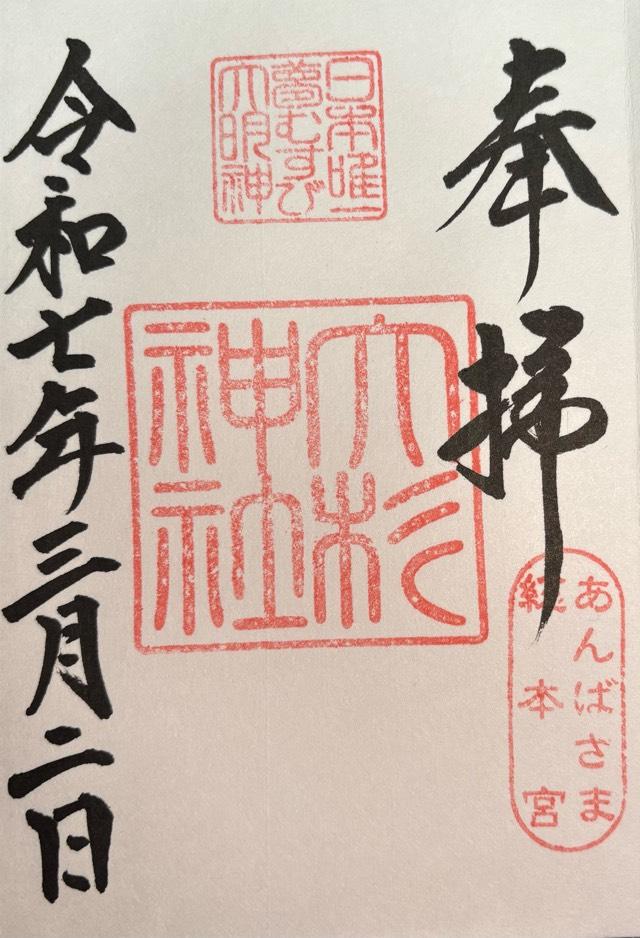 奉拝
日本唯一
夢むすび
大明神
大杉
神社
あんばさま
総本宮
令和七年三月二日